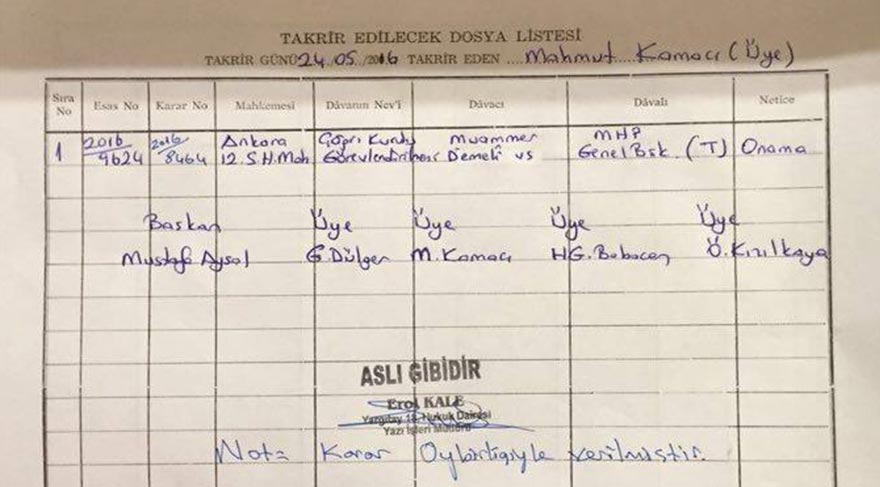 TAKRİR EDİLECEK DOSYA LİSTESİ
TAKRİR GÜNÜ 24.05./2016 TAKRİR EDEN ....Mahmut....Kamacı (Üye)
Sıra No Esas No Karar No Mahkemesi Dâvanın Nev'i Dâvacı Dâvalı Netice
1 2016/9624 2016/8464 Ankara 12.S.H.Mah Çağrı Kurulu Muammer Demeli vs MHP Genel Bşk. (T) Onama
Başkan Üye Üye Üye Üye
Mustafa Aysal G.Dülger M.Kamacı HG.Babacan Ö.Kızılkaya
ASLI GİBİDİR
Erol KALE
Yargıtay 18. Hukuk Dairesi
Yazı İşleri Müdürü
Not= Karar Oybirliğiyle verilmiştir.